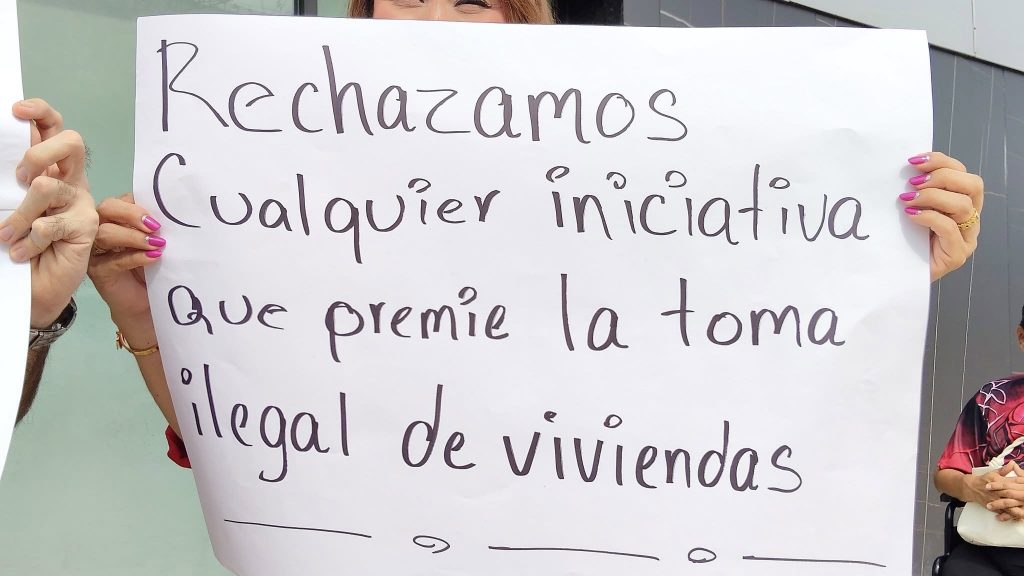 Rechazamos
Cualquier iniciativa
que premie la toma
ilegal de viviendas